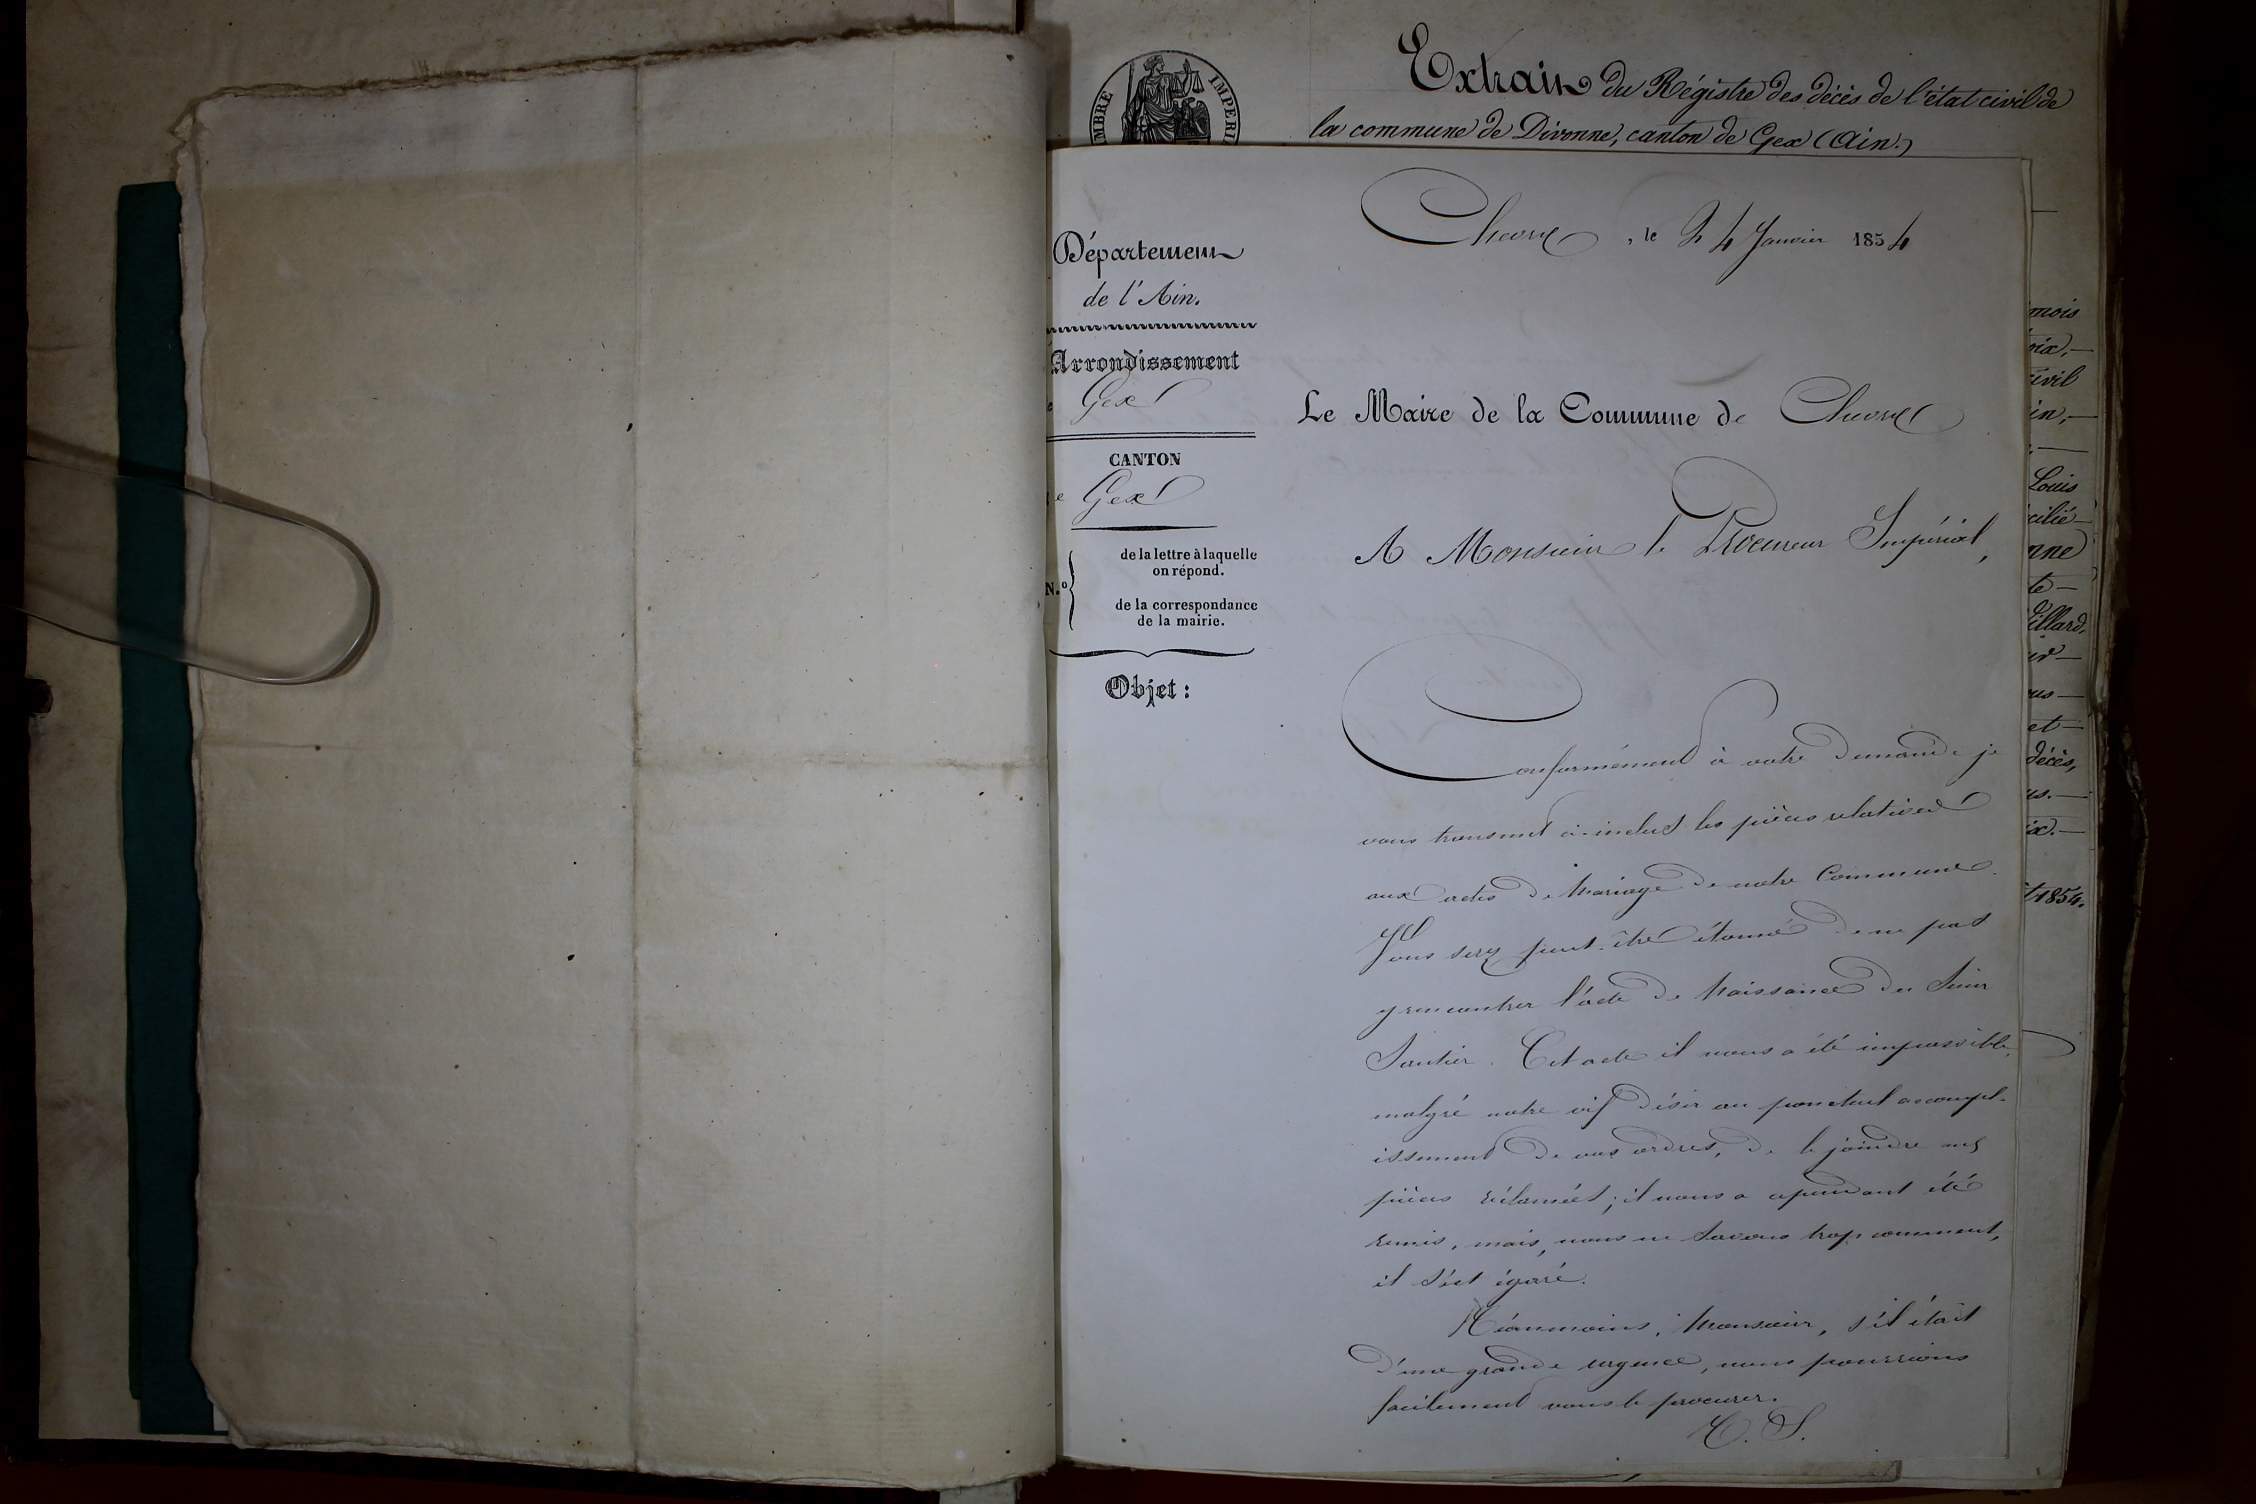 Extrait du Régistre des décès de l'état civil de
la commune de Divonne, canton de Gex (Ain.)
TIMBRE IMPERIAL
Département
de l'Ain.
Arrondissement
Gex
CANTON
de Gex
N.º
de la lettre à laquelle
on répond.
de la correspondance
de la mairie.
Objet :
Chevry, le 24 Janvier 1854
Le Maire de la Commune de Chevry
A Monsieur le Procureur Impérial,
Conformément à votre demande je
vous transmet ci-inclus les pièces relatives
aux actes de Mariage de notre Commune.
Vous serez peut-être étonné de ne pas
y rencontrer l'acte de Naissance du Sieur
Sautier. Cet acte il nous a été impossible,
malgré notre vif désir au ponctuel accompl-
issement de vos ordres, de le joindre aux
pièces réclamées; il nous a cependant été
remis, mais, nous ne savons trop comment,
il s'est égaré.
Néanmoins, Monsieur, s'il était
d'une grande urgence, nous pourrions
facilement vous le procurer.
T. S.
mois
civil
Louis
Villard,
et
décès,
1854.